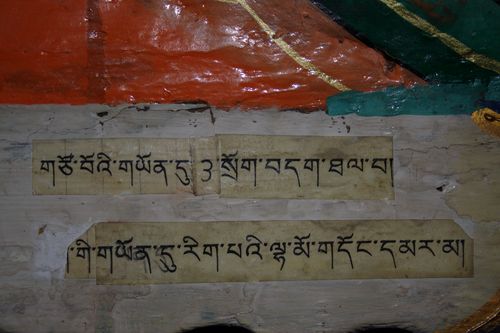 གཙོ་བོའི་གཡོན་དུ ༣ སྲོག་བདག་ཐལ་བ།
།་གི་གཡོན་དུ་རིག་པའི་ལྷ་མོ་གདོང་དམར་མ།